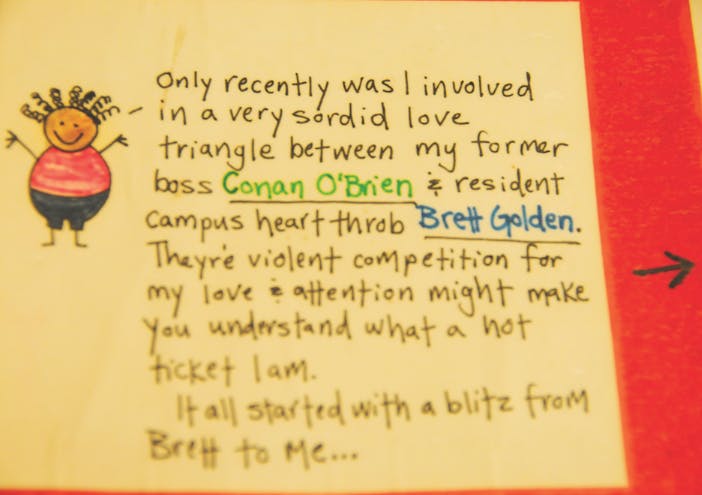 Only recently was I involved
in a very sordid love
triangle between my former
boss Conan O'Brien & resident
campus heart throb Brett Golden.
They're violent competition for
my love & attention might make
you understand what a hot
ticket I am.
It all started with a blitz from
Brett to Me...